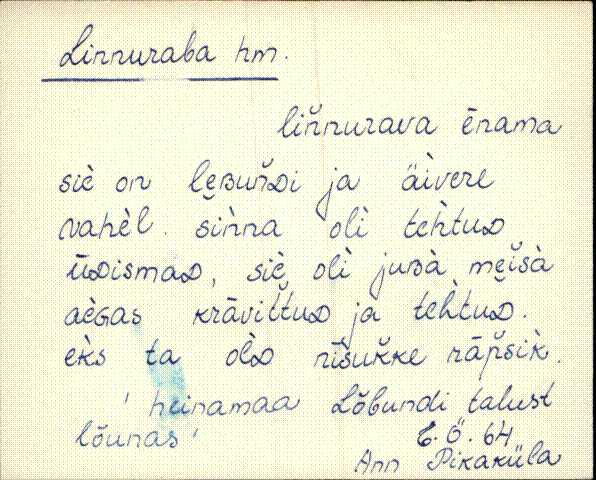 Linnuraba hm.
liňnurava ēnama
siè on lȩʙuřᴅi ja äìvere
vahèl. siǹna olì tehtuᴅ
üᴅismaᴅ, siè olì juʙà meǐsà
aèɢas krāvittuᴅ ja tehtuᴅ.
eks ta olᴅ nīšuǩke räp̌sik.
' heinamaa Lõbundi talust
lõunas'
E. Ö. 64
Ann Pikaküla